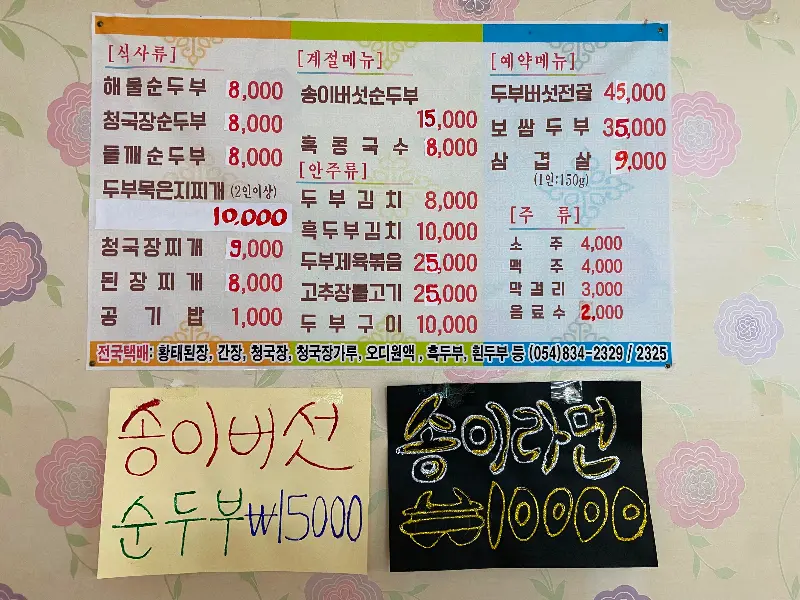 [식사류]
해물순두부 8,000
청국장순두부 8,000
들깨순두부 8,000
두부묵은지찌개 (2인이상)
10,000
청국장찌개 9,000
된장찌개 8,000
공기밥 1,000
[계절메뉴]
송이버섯순두부
15,000
흑콩국수 8,000
[안주류]
두부김치 8,000
흑두부김치 10,000
두부제육볶음 25,000
고추장불고기 25,000
두부구이 10,000
[예약메뉴]
두부버섯전골 45,000
보쌈두부 35,000
삼겹살 9,000
(1인:150g)
[주류]
소주 4,000
맥주 4,000
막걸리 3,000
음료수 2,000
전국택배: 황태된장, 간장, 청국장, 청국장가루, 오디원액, 흑두부, 흰두부 등 (054)834-2329 / 2325
송이버섯
순두부 ₩15000
송이라면
₩10000